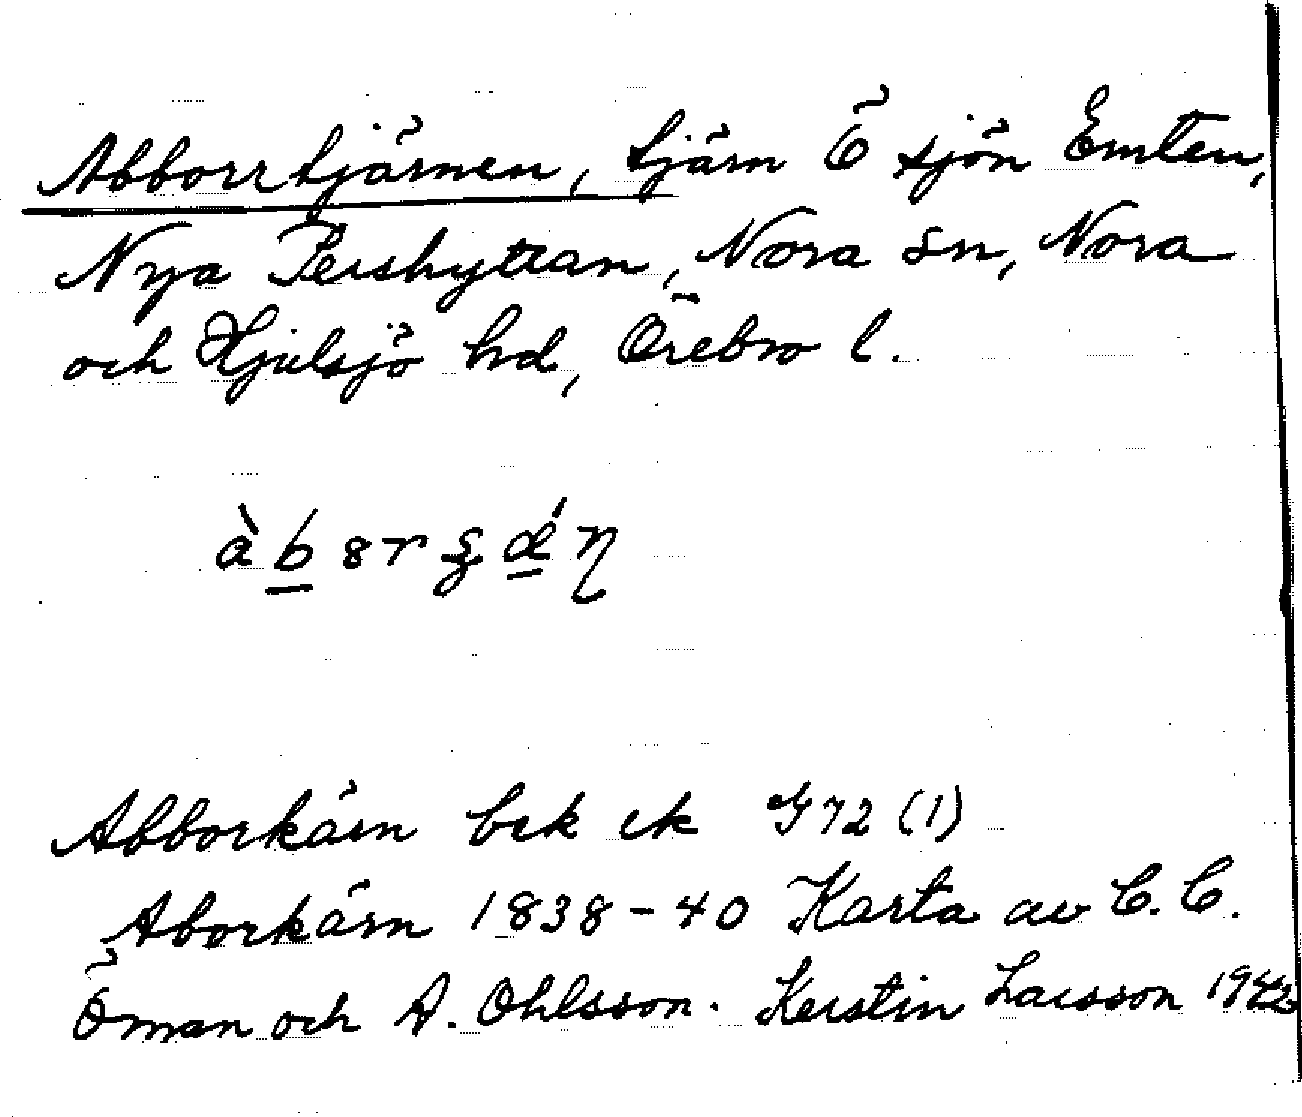 Abborrtjärnen, tjärn Ö sjön Emten,
Nya Pershyttan, Nora sn, Nora
och Hjulsjö hd, Örebro l.
Abborkärn bek ek G72 (1)
Aborkärn 1838-40 Karta av C. C.
Öman och A. Ohlsson. Kerstin Larsson 1942